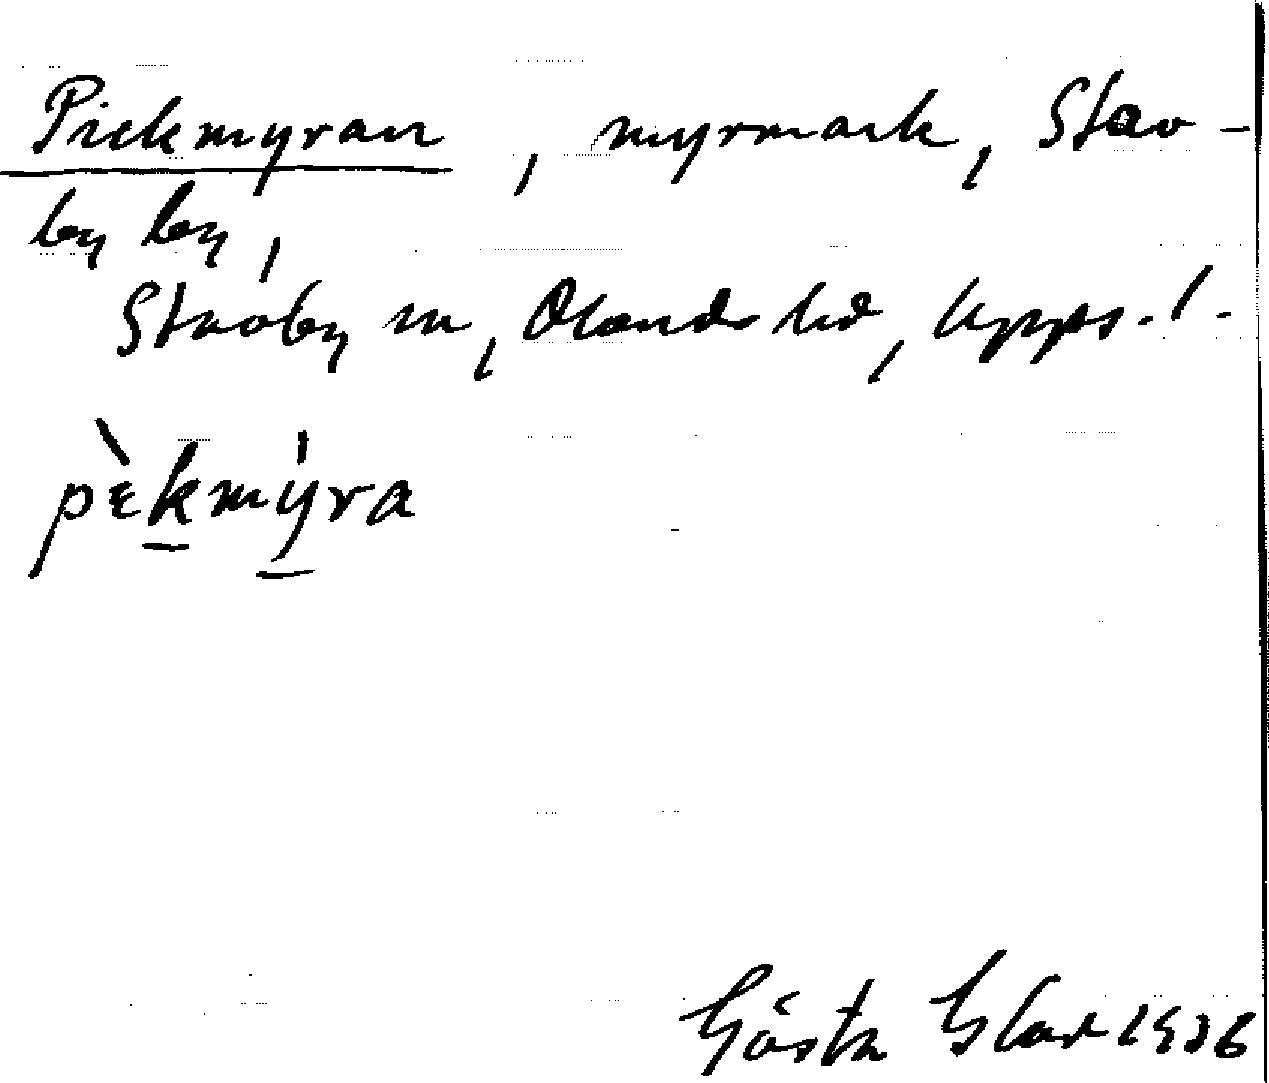 Pickmyran, myrmark, Stav-
by by,
Stavby sn, Olands hd, Upps. l.
pɛ̀kmýra
Gösta 1936